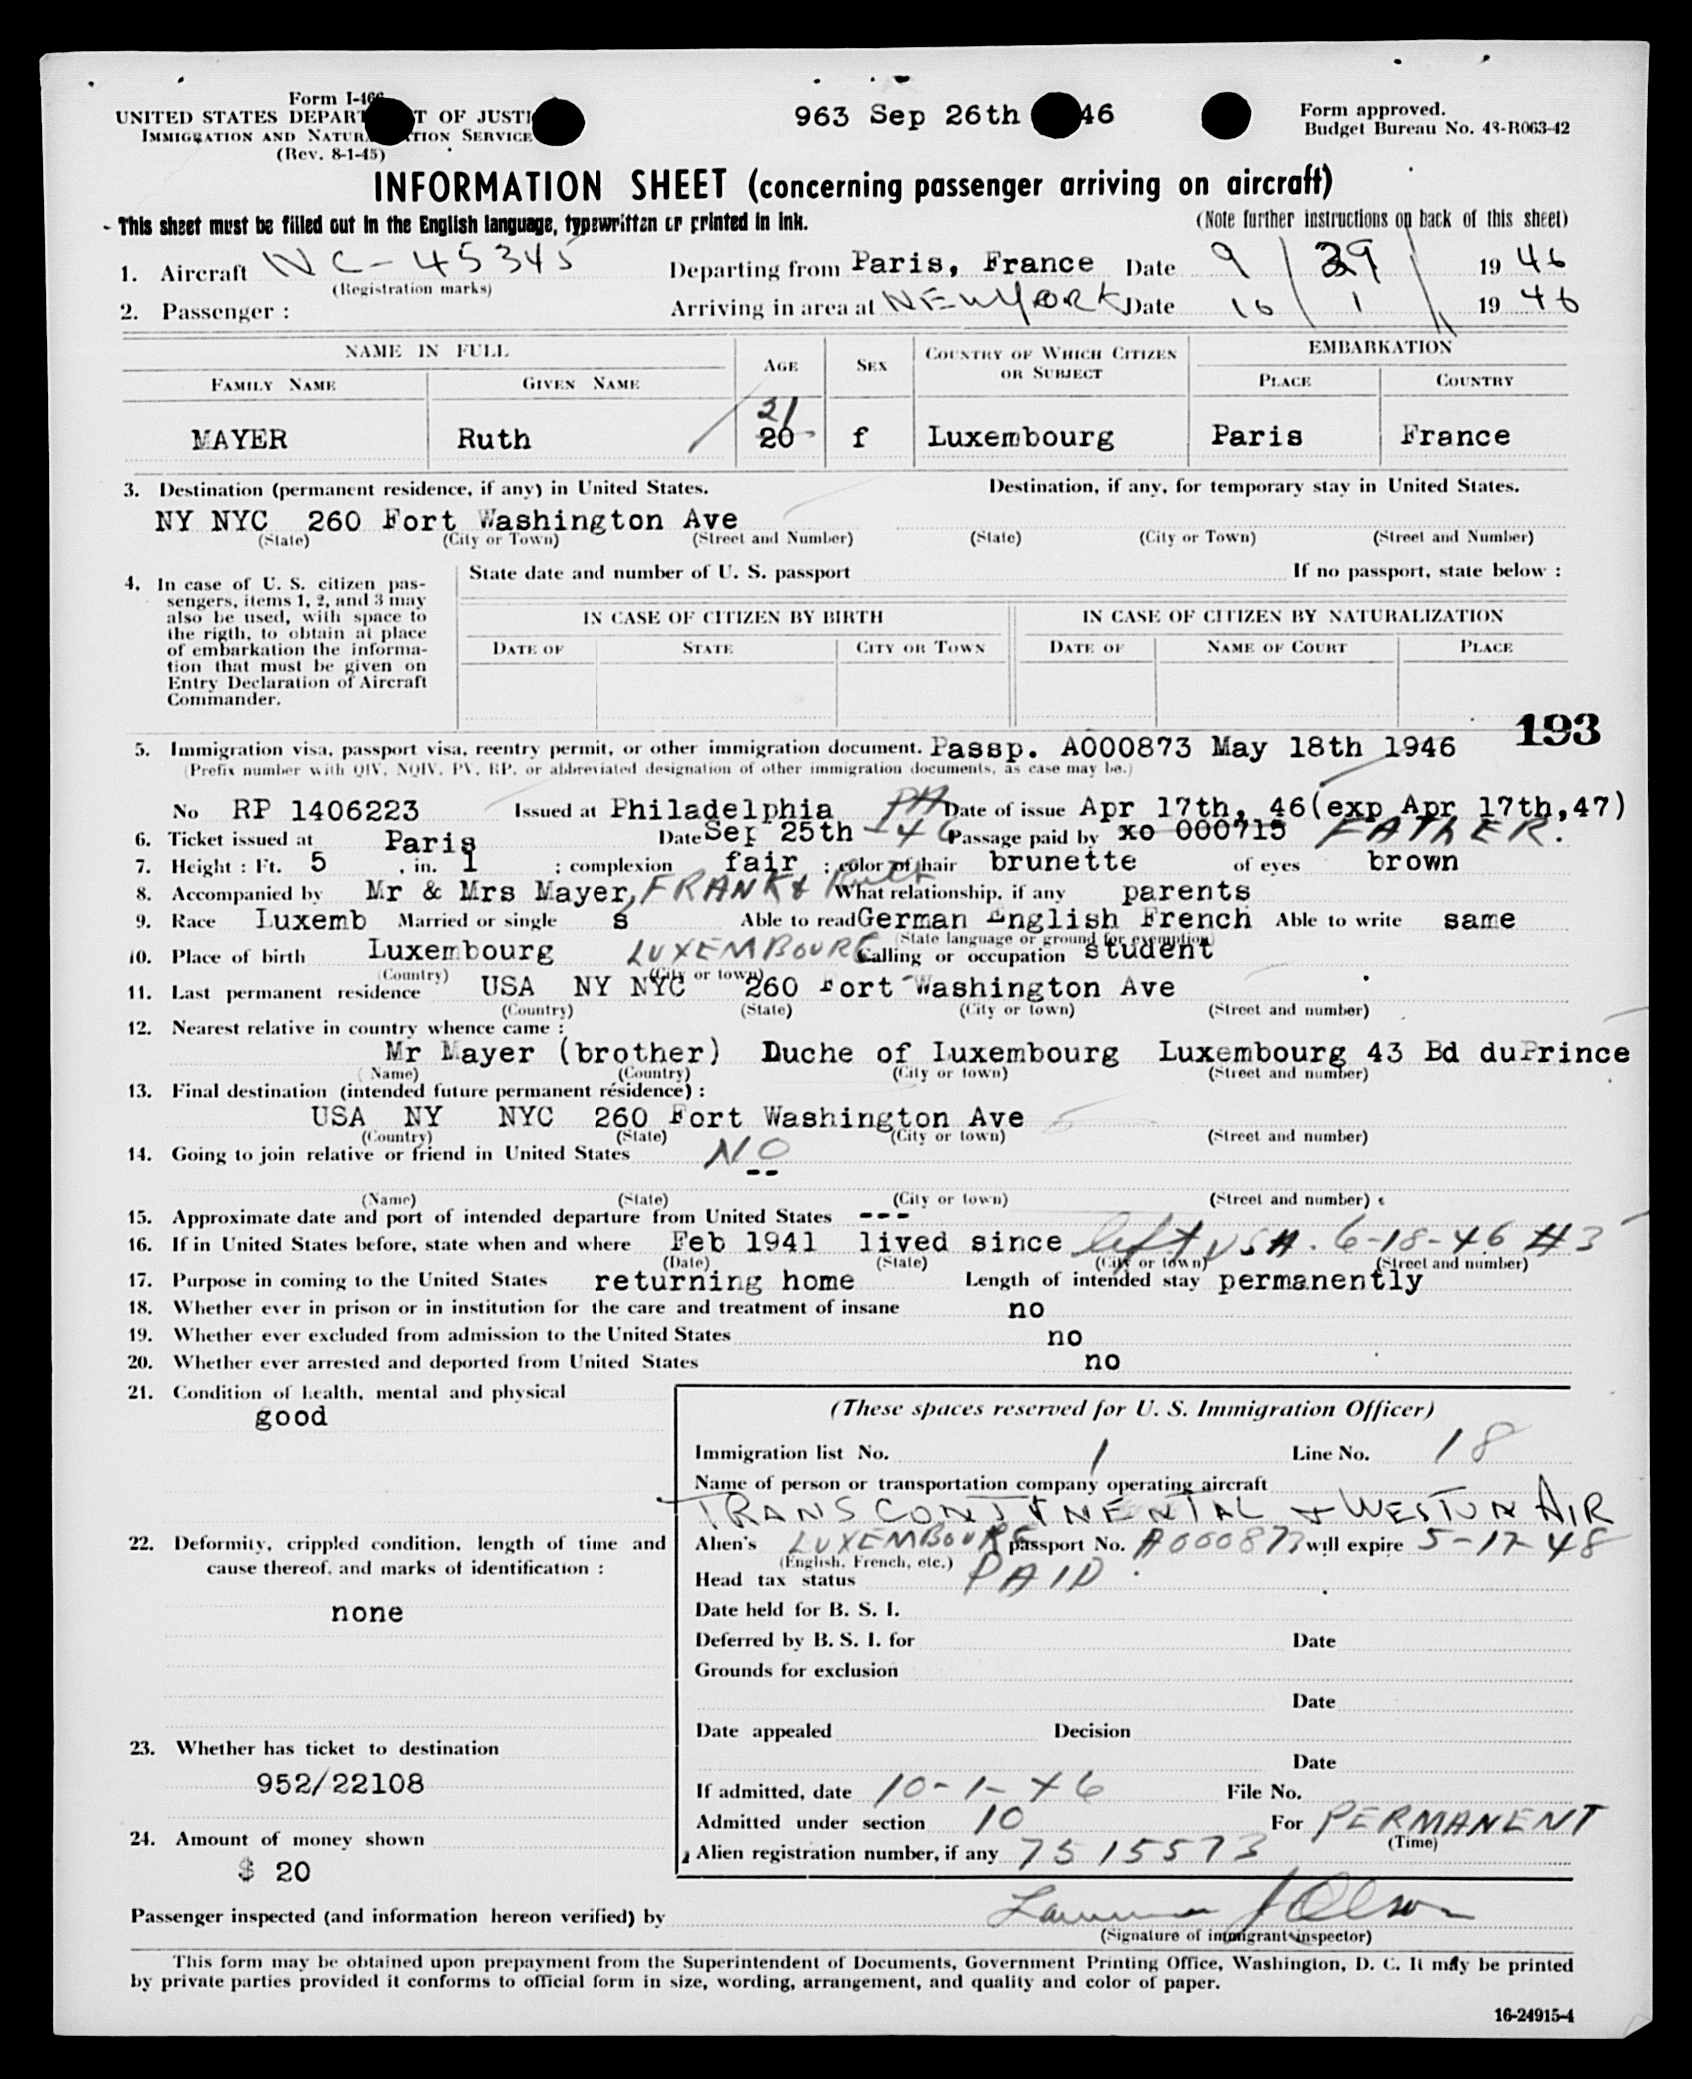 Form I-466
963 Sep 26th 46
Form approved.
UNITED STATES DEPART T OF JUSTI
Budget Bureau No. 43-R063-42
IMMIGRATION AND NATUR TION SERVICE
(Rev. 8-1-45)
INFORMATION SHEET (concerning passenger arriving on aircraft)
This sheet must be filled out in the English language, typewritten or printed in ink.
(Note further instructions on back of this sheet)
1. Aircraft NC-45345 Departing from Paris, France Date 9/29/ 1946
(Registration marks)
2. Passenger : Arriving in area at NEWYORK Date 10/1/ 1946
NAME IN FULL AGE SEX COUNTRY OF WHICH CITIZEN OR SUBJECT EMBARKATION
FAMILY NAME GIVEN NAME PLACE COUNTRY
21
MAYER Ruth 20 f Luxembourg Paris France
3. Destination (permanent residence, if any) in United States. Destination, if any, for temporary stay in United States.
NY NYC 260 Fort Washington Ave
(State) (City or Town) (Street and Number) (State) (City or Town) (Street and Number)
4. In case of U. S. citizen pas-
sengers, items 1, 2, and 3 may
also be used, with space to
the rigth, to obtain at place
of embarkation the informa-
tion that must be given on
Entry Declaration of Aircraft
Commander.
State date and number of U. S. passport If no passport, state below :
IN CASE OF CITIZEN BY BIRTH IN CASE OF CITIZEN BY NATURALIZATION
DATE OF STATE CITY OR TOWN DATE OF NAME OF COURT PLACE
193
5. Immigration visa, passport visa, reentry permit, or other immigration document. Passp. A000873 May 18th 1946
(Prefix number with QIV, NQIV, PV, RP, or abbreviated designation of other immigration documents, as case may be.)
No RP 1406223 Issued at Philadelphia PA Date of issue Apr 17th, 46(exp Apr 17th,47)
6. Ticket issued at Paris Date Sep 25th -46 Passage paid by xo 000715 FATHER.
7. Height : Ft. 5 , in. 1 ; complexion fair ; color of hair brunette of eyes brown
8. Accompanied by Mr & Mrs Mayer, FRANK & Ruth What relationship, if any parents
9. Race Luxemb Married or single s Able to read German English French Able to write same
(State language or ground for exemption)
10. Place of birth Luxembourg LUXEMBOURG Calling or occupation student
(Country) (City or town)
11. Last permanent residence USA NY NYC 260 Fort Washington Ave
(Country) (State) (City or town) (Street and number)
12. Nearest relative in country whence came :
Mr Mayer (brother) Duche of Luxembourg Luxembourg 43 Bd duPrince
(Name) (Country) (City or town) (Street and number)
13. Final destination (intended future permanent résidence) :
USA NY NYC 260 Fort Washington Ave
(Country) (State) (City or town) (Street and number)
14. Going to join relative or friend in United States NO
--
(Name) (State) (City or town) (Street and number)
15. Approximate date and port of intended departure from United States ---
16. If in United States before, state when and where Feb 1941 lived since left USA. 6-18-46 #3
(Date) (State) (City or town) (Street and number)
17. Purpose in coming to the United States returning home Length of intended stay permanently
18. Whether ever in prison or in institution for the care and treatment of insane no
19. Whether ever excluded from admission to the United States no
20. Whether ever arrested and deported from United States no
21. Condition of health, mental and physical
good
(These spaces reserved for U. S. Immigration Officer)
Immigration list No. 1 Line No. 18
Name of person or transportation company operating aircraft
TRANSCONTINENTAL & WESTUN AIR
22. Deformity, crippled condition, length of time and
cause thereof, and marks of identification :
none
Alien's LUXEMBOURG passport No. A000873 will expire 5-17-48
(English, French, etc.)
Head tax status PAID
Date held for B. S. I.
Deferred by B. S. I. for Date
Grounds for exclusion
Date
23. Whether has ticket to destination
952/22108
Date appealed Decision
Date
If admitted, date 10-1-46 File No.
Admitted under section 10 For PERMANENT
(Time)
24. Amount of money shown
$ 20
Alien registration number, if any 7515573
Passenger inspected (and information hereon verified) by
(Signature of immigrant inspector)
This form may be obtained upon prepayment from the Superintendent of Documents, Government Printing Office, Washington, D. C. It may be printed
by private parties provided it conforms to official form in size, wording, arrangement, and quality and color of paper.
16-24915-4